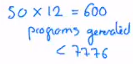 50 × 12 = 600
programs generated
< 7776